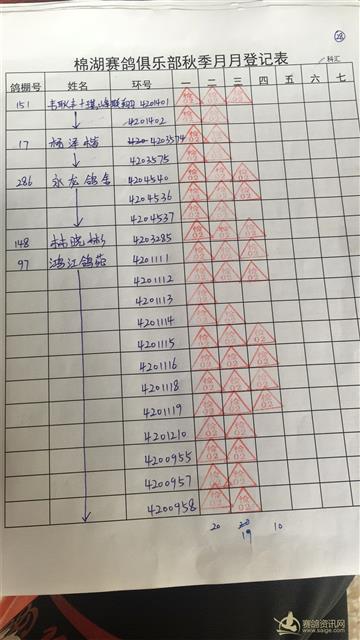 28
棉湖赛鸽俱乐部秋季月月登记表
科汇
鸽棚号 姓名 环号 一 二 三 四 五 六 七
151 4201401
4201402
17 杨泽楷 4203574
4203575
286 永龙鸽舍 4204540
4204536
4204537
148 林晓彬 4203285
97 鸿江鸽苑 4201111
4201112
4201113
4201114
4201115
4201116
4201118
4201119
4201210
4200955
4200957
4200958
20 20 10
19
赛鸽资讯网
www.saige.com